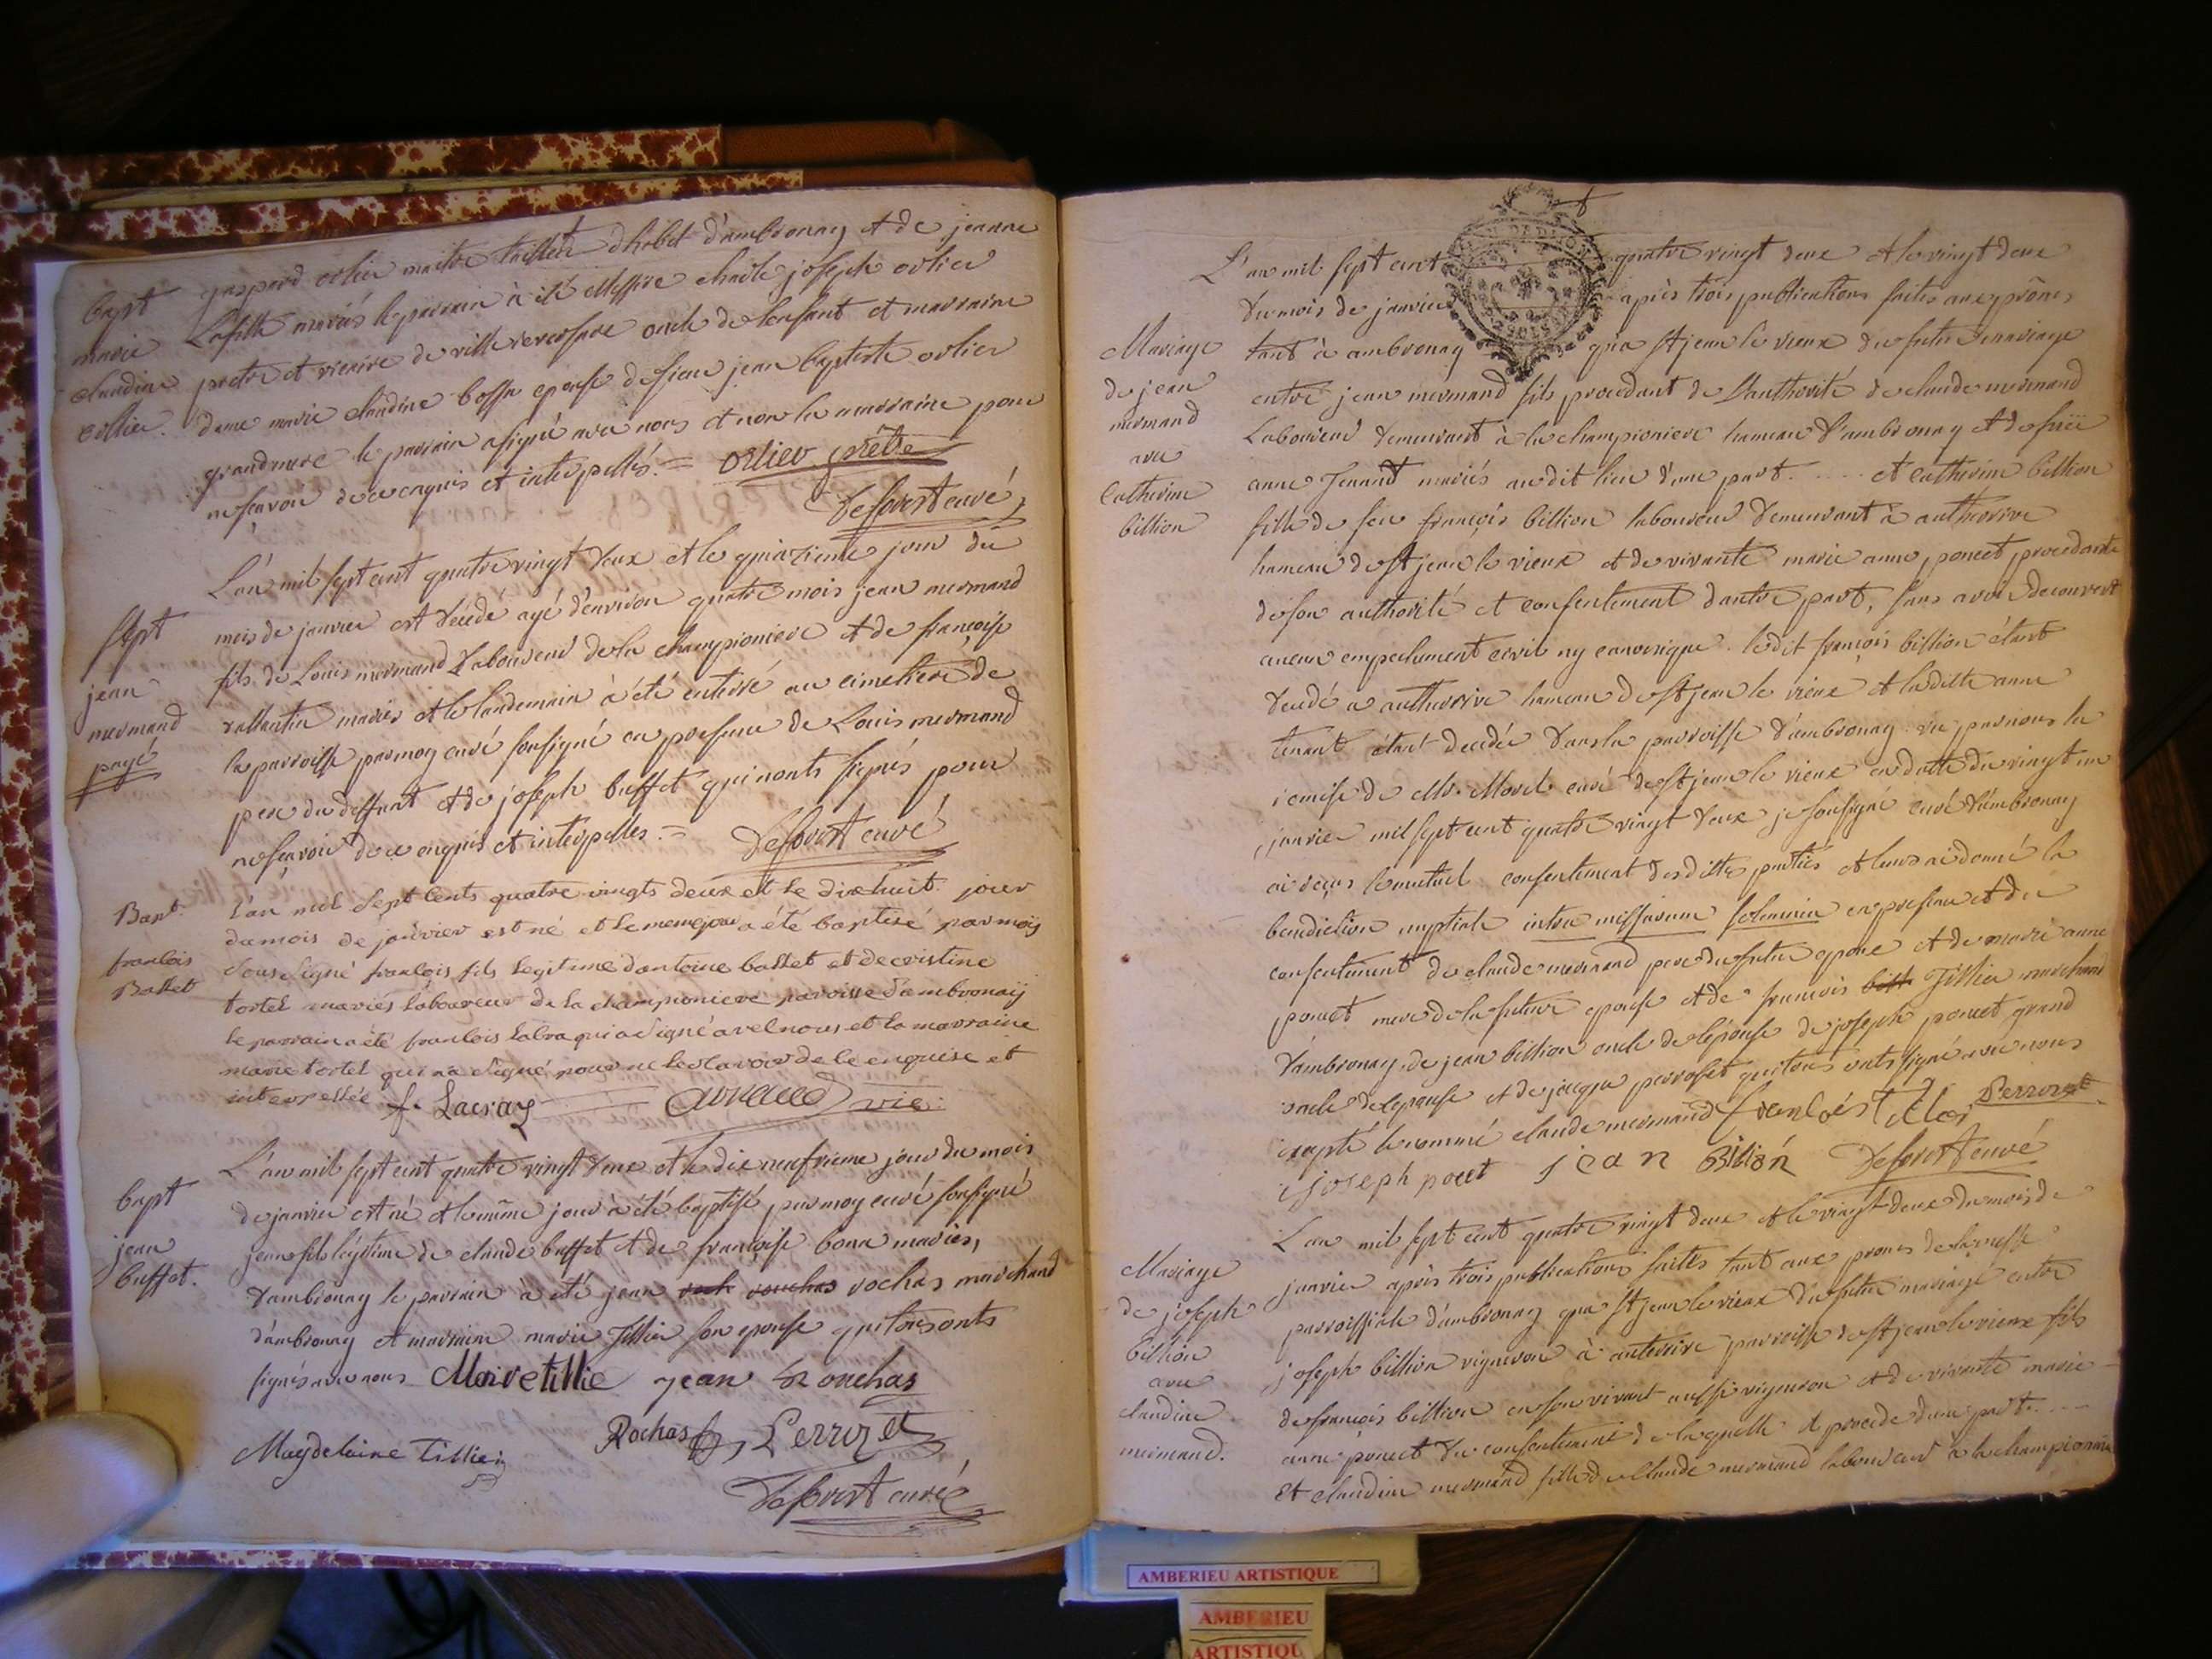 bapt
marie
claudine
orllier.
gaspard orlier maitre tailleur d'habit d'ambronay et de jeanne
Lafille mariés le parrain à été Messire charle joseph orlier
pretre et vicaire de villereversure oncle de l'enfant et marraine
dame marie claudine bossu epouse de sieur jean baptiste orlier
grandmere le parrain a signé avec nous et non la marraine pour
ne scavoir de ce enquis et interpellés. = orlier prêtre
Deforest curé
Sept
jean
mermand
payé
L'an mil sept cent quatre vingt deux et le quinzieme jour du
mois de janvier est décédé agé d'environ quatre mois jean mermand
fils de Louis mermand Laboureur de la championiere et de françoise
vallentin mariés et le landemain à été enterré au cimetiere de
la parroisse par moy curé soussigné en presence de Louis mermand
pere du deffunt et de joseph buffet qui n'onts signés pour
ne sçavoir de ce enquis et interpelles = Deforest curé
Bapt.
francois
Ballet
L'an mil sept cents quatre vingts deux et le dixhuit jour
du mois de janvier est né et le meme jour a été baptisé par moÿ
sousigné françois fils legitime d'antoine ballet et de cristine
tortel mariés laboureur de la championiere paroisse d'ambronaÿ
le parrain a été francois labra qui a signé avec nous et la marraine
marie tortel qui n'a signé pour ne le scavoir de ce enquise et
interpellée f. Lacray vic.
bapt
jean
buffet.
L'an mil sept cent quatre vingt deux et le dix neufvieme jour du mois
de janvier est né et le même jour à été baptisé par moy curé soussigné
jean fils légitime de claude buffet et de françoise bona mariés,
d'ambronay le parrain à été jean roch rouchas rochas marchand
d'ambronay et marraine marie Tillier son epouse qui tous onts
signés avec nous Marie tillie jean Rouchas
Magdelaine tillier Rochas Perrozet
Deforest curé
Mariage
de jean
mermand
avec
Catherine
billion
L'an mil sept cent quatre vingt deux et le vingt deux
du mois de janvier après trois publications faites aux prônes
tant à ambronay qu'a St jean le vieux du futur mariage
entre jean mermand fils procedant de l'authorité de claude mermand
Laboureur demeurant à la championiere hameau d'ambronay et de feüe
anne Tenant mariés audit lieu d'une part. .... et catherine billion
fille de feu françois billion laboureur demeurant à authorive
hameau de St jean le vieux et de vivante marie anne poncet procedante
de son authorité et consentement d'autre part, sans avoir decouvert
aucun empechement civil ny canonique. ledit françois billion étant
decedé a autherrive hameau de St jean le vieux et laditte anne
tenant étant decedée dans la parroisse d'ambronay. vu par nous la
remise de Mr. Morel curé de St jean le vieux en datte du vingt un
janvier mil sept cent quatre vingt deux je soussigné curé d'ambronay
ai reçus le mutuel consentement desdittes parties et leurs ai donné la
benediction nuptiale intra missarum solemnia en presence et du
consentement de claude mermand pere du futur epoux et de marie anne
poncet mere de la future epouse et de francois bill Tillier marchand
d'ambronay, de jean billion oncle de l'épouse de joseph poncet grand
oncle de l'epouse et de jacque perroset qui tous onts signé avec nous
excepté le nommé claude mermand françois Tillier Perrozet
joseph poncet jean Billión Deforest curé
Mariage
de joseph
billion
avec
claudine
mermand.
L'an mil sept cent quatre vingt deux et le vingt deux du mois de
janvier après trois publications faites tant aux prones de la messe
parroissiale d'ambronay qu'a St jean le vieux du futur mariage entre
joseph billion vigneron à auterive parroisse de St jean le vieux fils
de françois billion en son vivant aussi vigneron et de vivante marie
anne poncet du consentement de laquelle il procede d'une part....
Et claudine mermand fille de claude mermand laboureur à la championiere
AMBERIEU ARTISTIQUE
AMBERIEU
ARTISTIQU